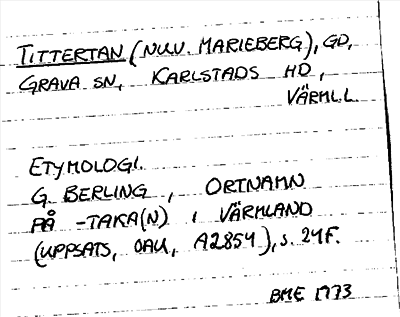 TITTERTAN (NUV. MARIEBERG), GD,
GRAVA SN, KARLSTADS HD,
VÄRML.L.
ETYMOLOGI.
G. BERLING, ORTNAMN
PÅ -TAKA(N) I VÄRMLAND
(UPPSATS, OAU, A2854), S. 24F.
BME 1773